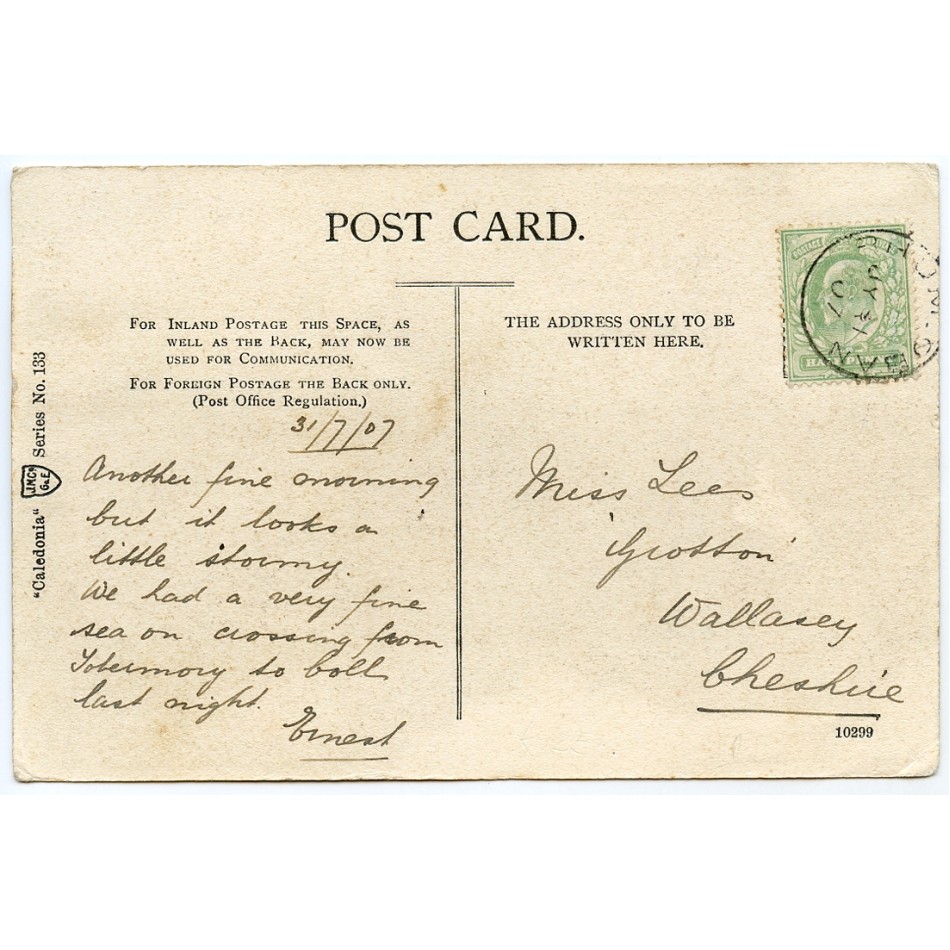 POST CARD.
FOR INLAND POSTAGE THIS SPACE, AS
WELL AS THE BACK, MAY NOW BE
USED FOR COMMUNICATION.
FOR FOREIGN POSTAGE THE BACK ONLY.
(Post Office Regulation.)
31/7/07
Another fine morning
but it looks a
little stormy.
We had a very fine
sea on crossing from
Tobermory to Coll
last night.
Ernest
THE ADDRESS ONLY TO BE
WRITTEN HERE.
Miss Lees
'Grotton'
Wallasey
Cheshire
10299
"Caledonia" Series No. 133
JY 31
07